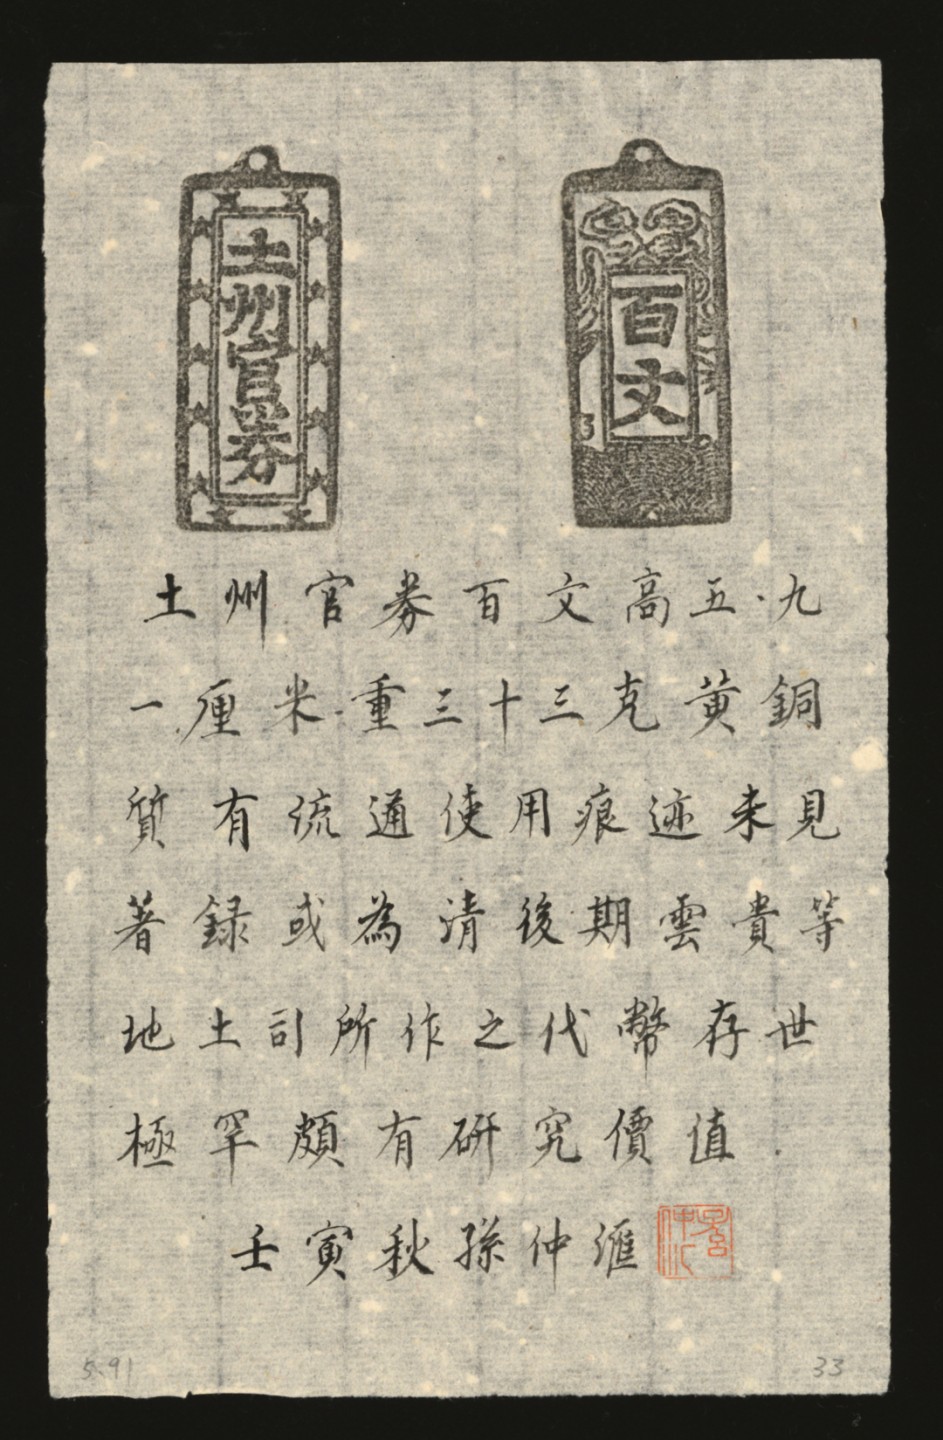 土州官券
百文
土州官券百文高五.九
一厘米.重三十三克黄銅
質有流通使用痕迹未見
著録或為清後期雲貴等
地土司所作之代幣存世
極罕頗有研究價值.
壬寅秋孫仲滙
5.91
33